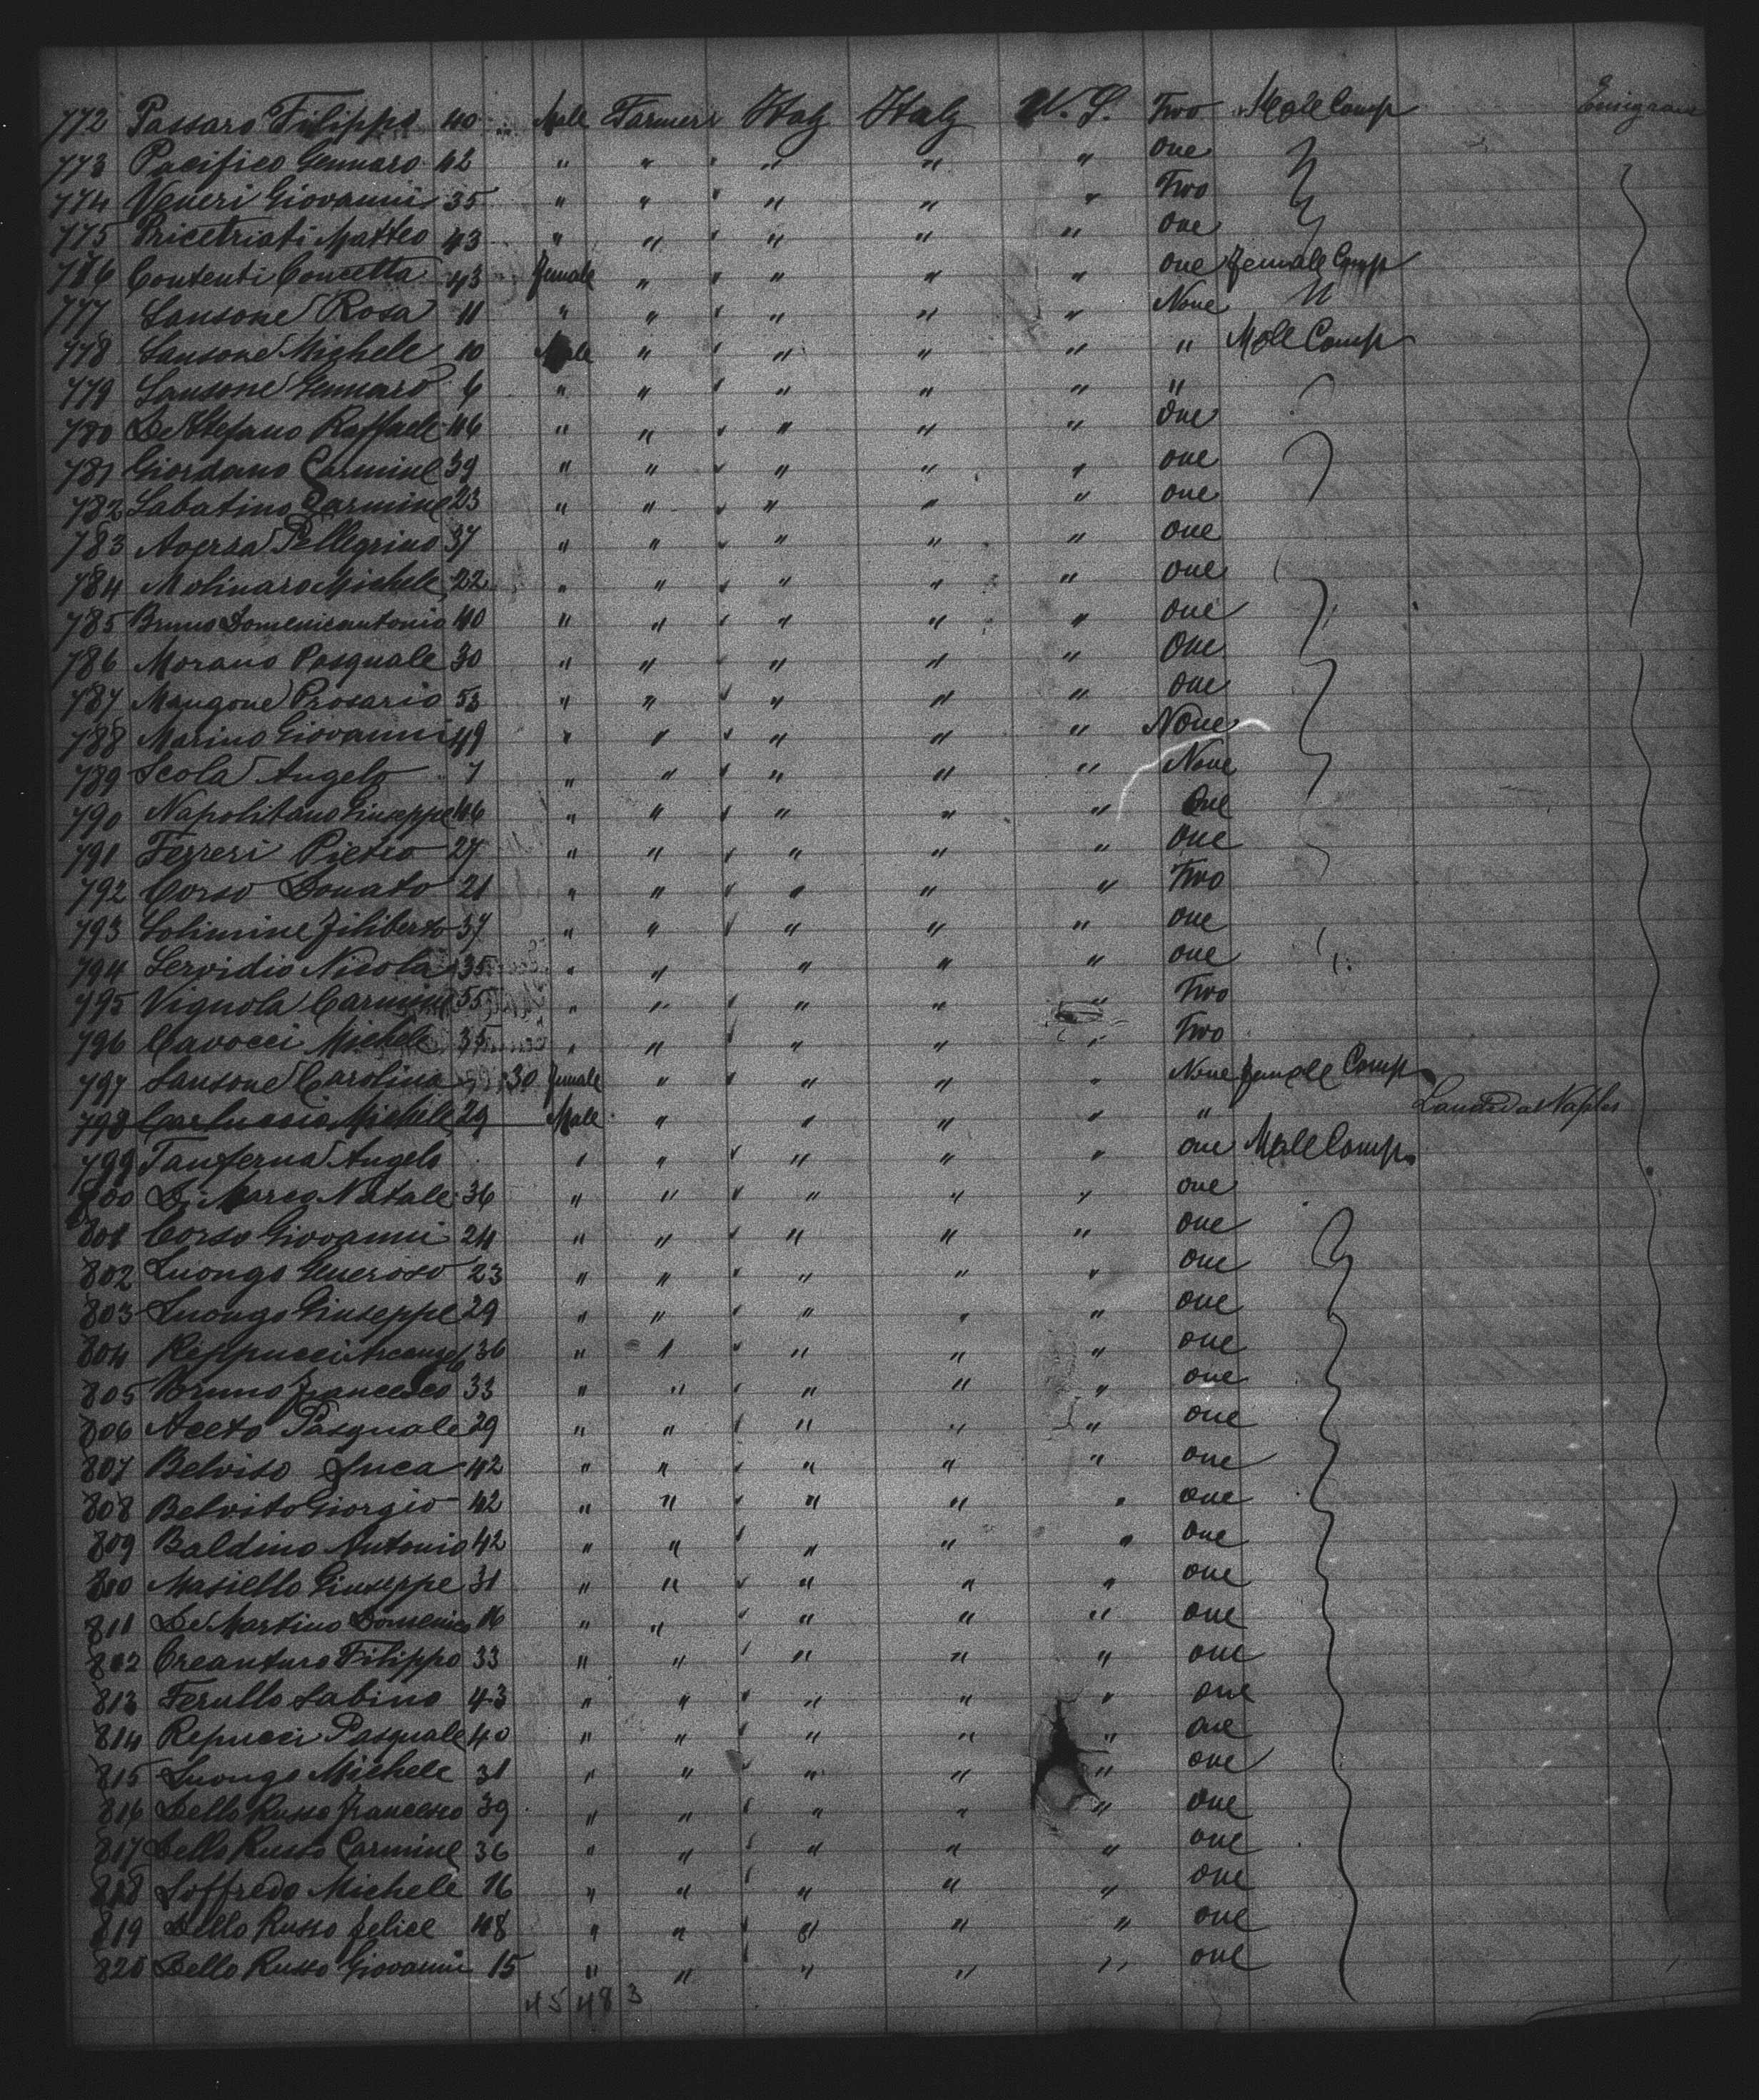 772 Passaro Filippo 40 Male Farmer Italy Italy U. S. Two Male Comp Emigrant
773 Pacifico Gennaro 42 " " " " " one
774 Veneri Giovanni 35 " " " " " Two
775 Pricetriati Matteo 43 " " " " " one
776 Contenti Concetta 43 female " " " " one female Comp
777 Sansone Rosa 11 " " " " " None "
778 Sansone Michele 10 Male " " " " " Male Comp
779 Sansone Gennaro 6 " " " " " "
780 De Stefano Raffaele 46 " " " " " One
781 Giordano Carmine 39 " " " " " one
782 Sabatino Carmine 23 " " " " " one
783 Aversa Pellegrino 37 " " " " " one
784 Molinaro Michele 22 " " " " " one
785 Bruno Domenicantonio 40 " " " " " one
786 Morano Pasquale 30 " " " " " One
787 Mangone Prosario 53 " " " " " one
788 Marino Giovanni 49 " " " " " None
789 Scola Angelo 7 " " " " " None
790 Napolitano Giuseppe 46 " " " " " One
791 Ferreri Pietro 27 " " " " " one
792 Corso Donato 21 " " " " " Two
793 Solimine Filiberto 37 " " " " " one
794 Servidio Nicola 35 " " " " " one
795 Vignola Carmine 55 " " " " " Two
796 Cavocci Michele 35 " " " " " Two
797 Sansone Carolina 30 female " " " " None female Comp
798 Carluccio Michele 29 Male " " " " " Landed at Naples
799 Tanferna Angelo " " " " " one Male Comp
800 Di Marco Natale 36 " " " " " one
801 Corso Giovanni 24 " " " " " one
802 Luongo Generoso 23 " " " " " one
803 Luongo Giuseppe 29 " " " " " one
804 Reppucci Arcangelo 36 " " " " " one
805 Bruno Francesco 33 " " " " " one
806 Aceto Pasquale 29 " " " " " one
807 Belviso Luca 42 " " " " " one
808 Belvito Giorgio 42 " " " " " one
809 Baldino Antonio 42 " " " " " One
810 Masiello Giuseppe 31 " " " " " one
811 De Martino Domenico 16 " " " " " one
812 Creanturo Filippo 33 " " " " " one
813 Ferullo Sabino 43 " " " " " one
814 Repucci Pasquale 40 " " " " " one
815 Luongo Michele 31 " " " " " one
816 Dello Russo Francesco 39 " " " " " One
817 Dello Russo Carmine 36 " " " " " one
818 Soffredo Michele 16 " " " " " one
819 Dello Russo Felice 48 " " " " " one
820 Dello Russo Giovanni 15 " " " " " one
45 48 3